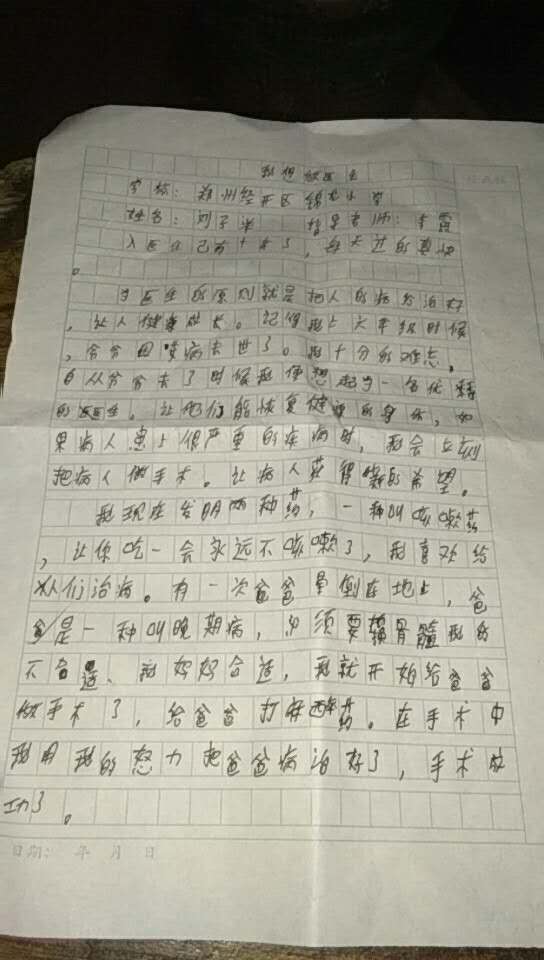 我想做医生
学校：郑州经开区锦龙小学
姓名：刘子洋 指导老师：李霞
入医生已有十年了，每天过的真快
。
当医生的原则就是把人的病给治好
，让人健康成长。记得我上六年级时候
，爷爷因哮病去世了。我十分的难忘，
自从爷爷去了时候我便想起当一名优秀
的医生。让他们能恢复健康的身体，如
果病人患上很严重的疾病时，我会立刻
把病人做手术。让病人获得新的希望。
我现在发明两种药，一种叫咳嗽药
，让你吃一会永远不咳嗽了，我喜欢给
人们治病。有一次爸爸晕倒在地上，爸
爸是一种叫晚期病，必须要换骨髓我的
不合适、我妈妈合适，我就开始给爸爸
做手术了，给爸爸打麻醉药。在手术中
我用我的怒力把爸爸病治好了，手术成
功了。
日期： 年 月 日